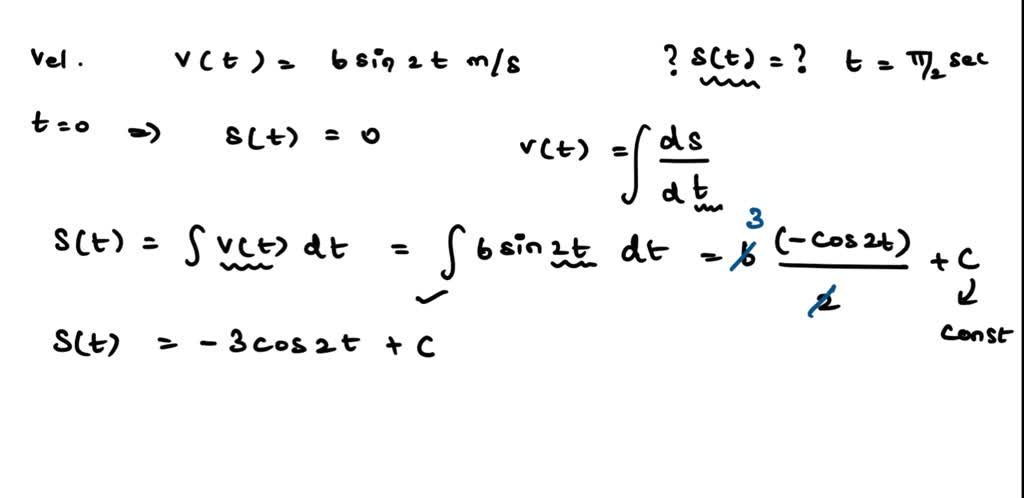 Vel. v(t) = 6 sin 2t m/s ? s(t) = ? t = π/2 sec
t=0 => s(t) = 0
v(t) = ∫ ds/dt
s(t) = ∫ v(t) dt = ∫ 6 sin 2t dt = 6 3 (-cos 2t)/2 + c
↓
const
s(t) = - 3 cos 2t + c